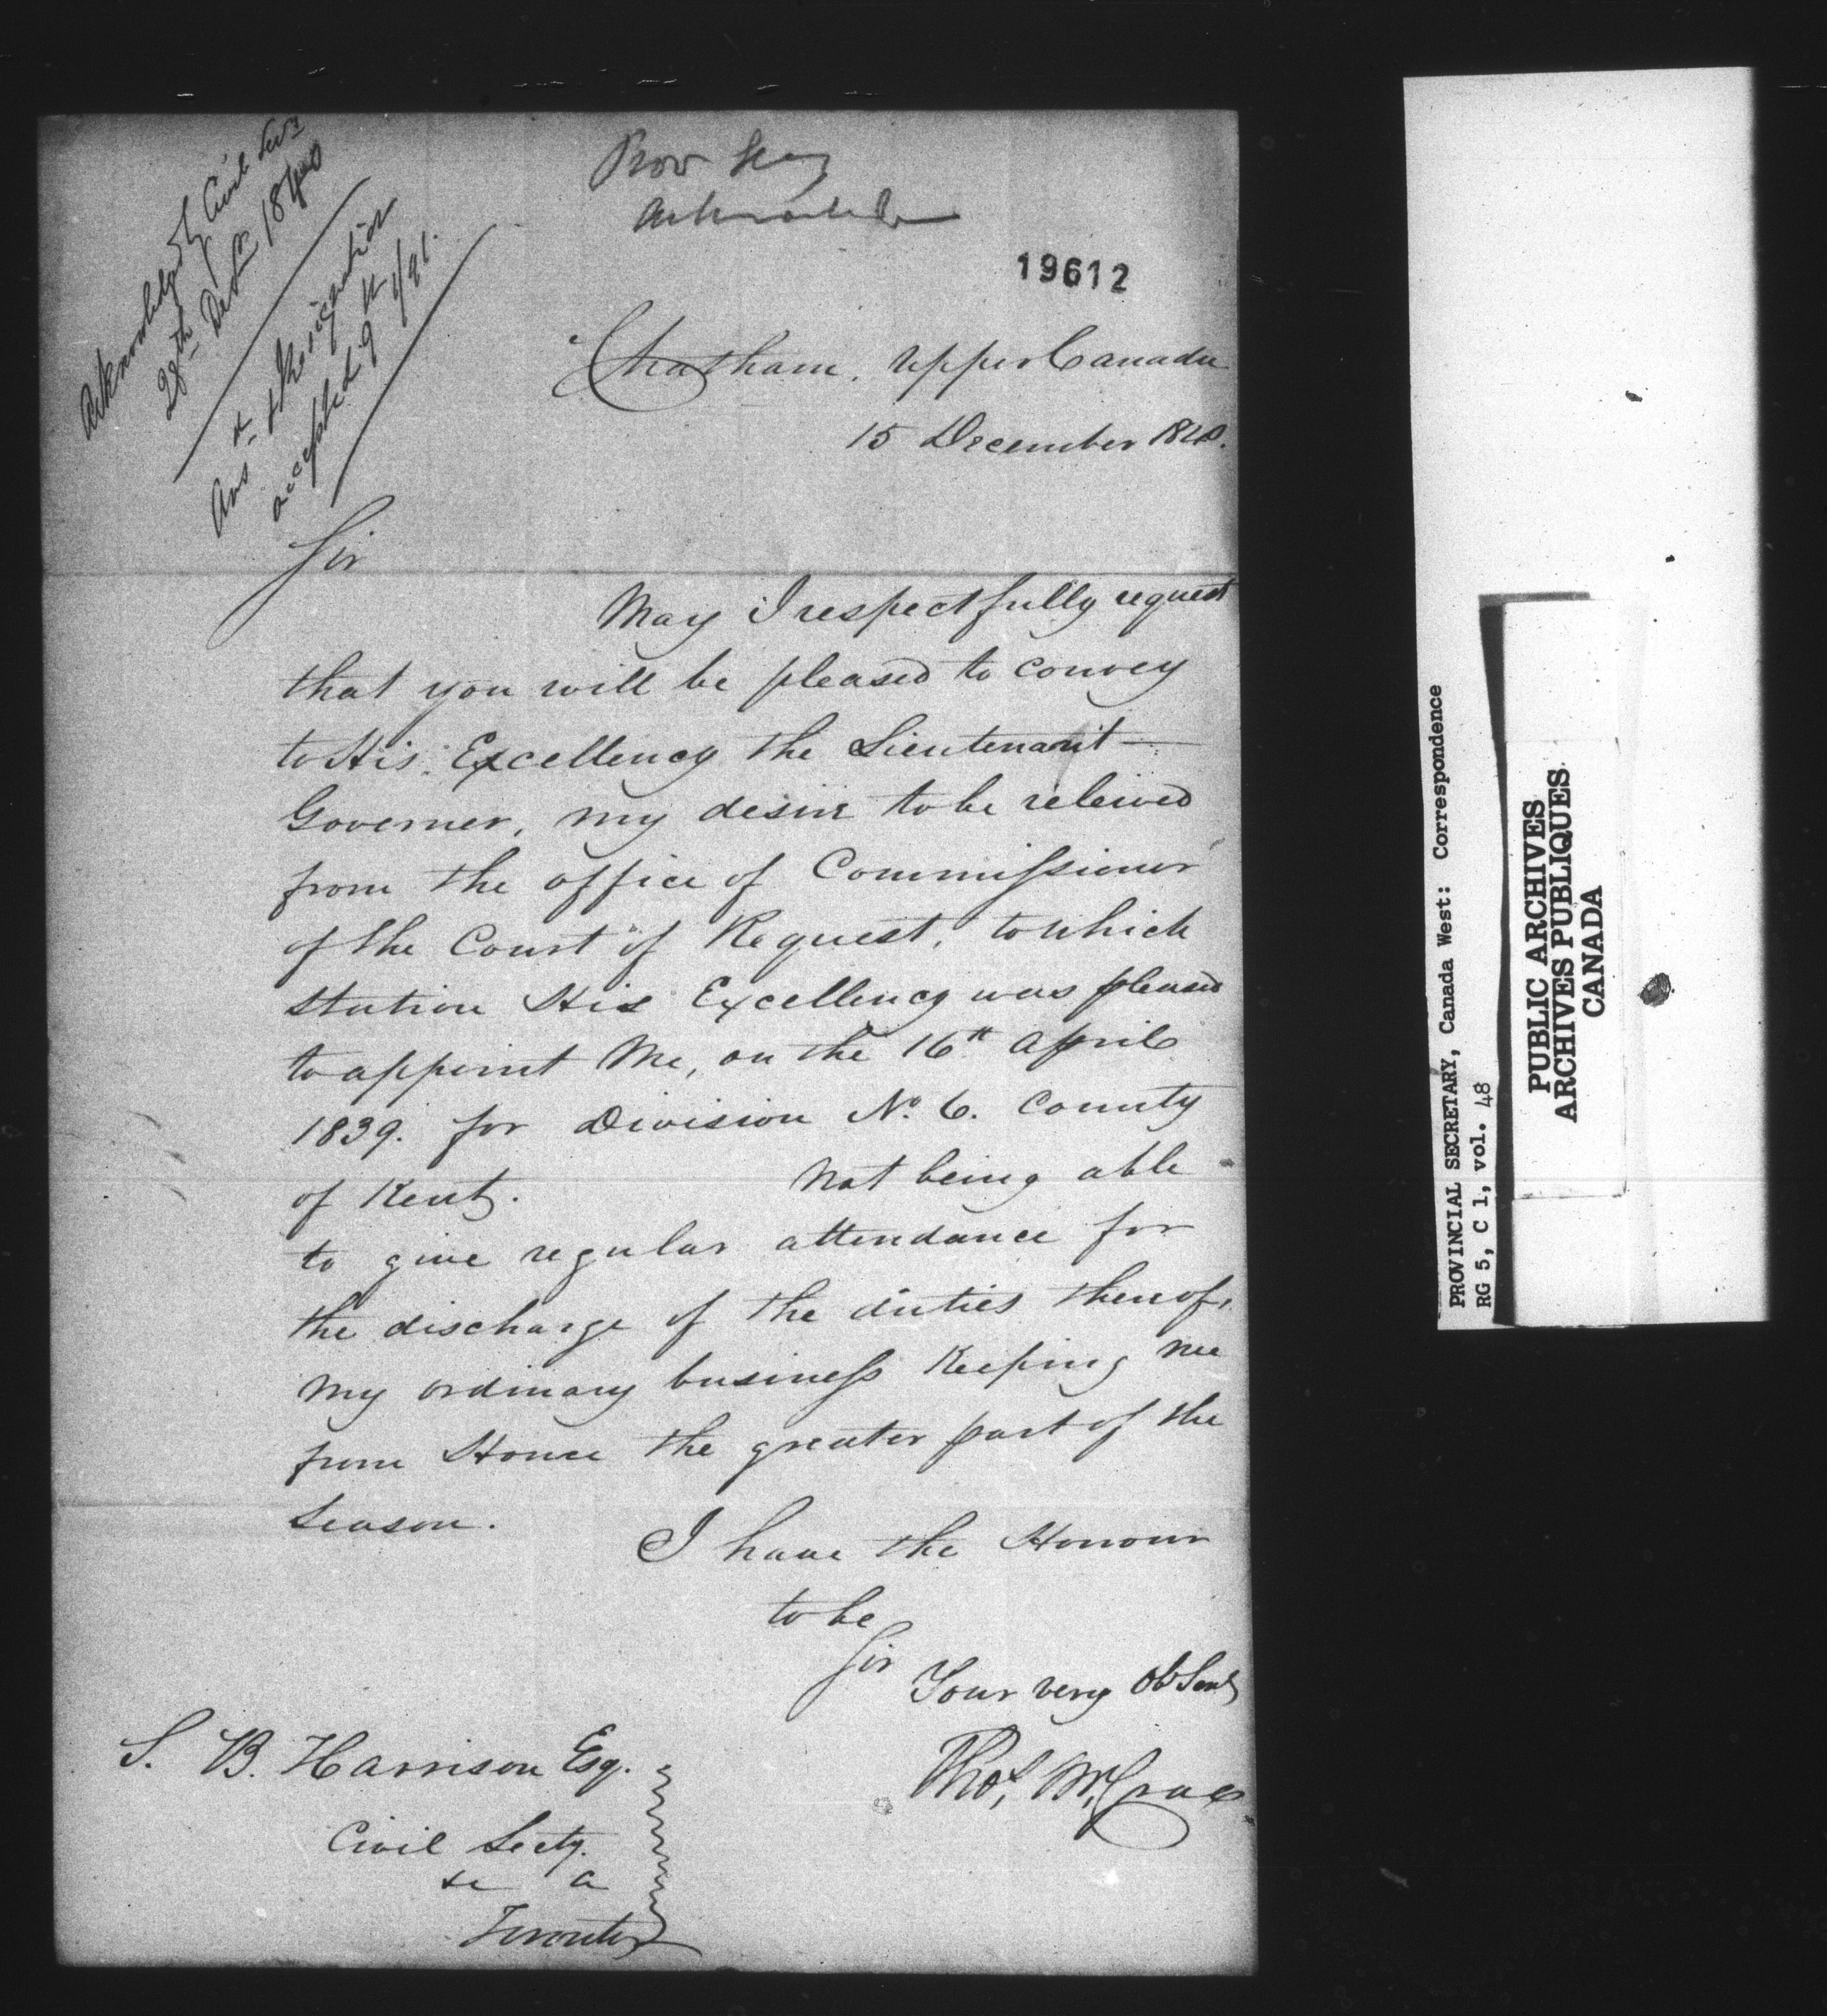 Acknowledged by Civil Secy
28th Decr 1840
Ans & Resignation
accepted 9
Prov Secy
Acknowledge
19612
Chatham, Upper Canada
15 December 1840.
Sir
May I respectfully request
that you will be pleased to convey
to His Excellency the Lieutenant—
Governer, my desire to be releived
from the office of Commissioner
of the Court of Request, to which
station His Excellency was pleased
to appoint Me, on the 16th April
1839. for Division No. 6. County
of Kent. Not being able
to give regular attendance for
the discharge of the duties thereof,
my ordinary business Keeping me
from Home the greater part of the
Season.
I have the Honour
to be
Sir
Your very Ob Servt
Thos. McCrae
S. B. Harrison Esq.
Civil Secty.
&c &
Toronto
PROVINCIAL SECRETARY, Canada West: Correspondence
RG 5, C 1, vol. 48
PUBLIC ARCHIVES
ARCHIVES PUBLIQUES
CANADA